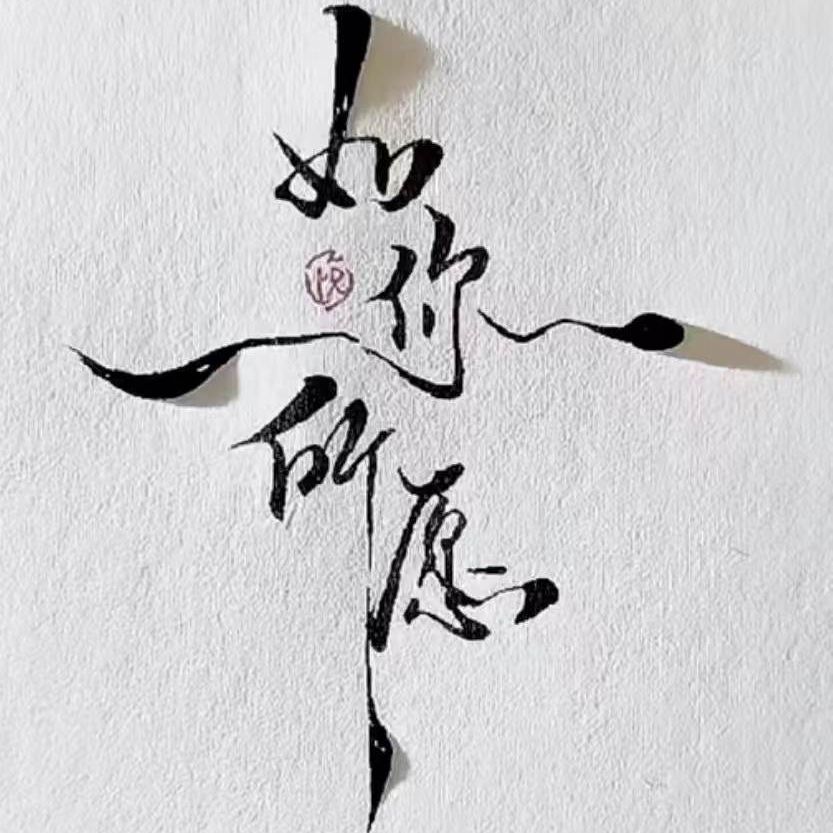 如你
所愿
悦